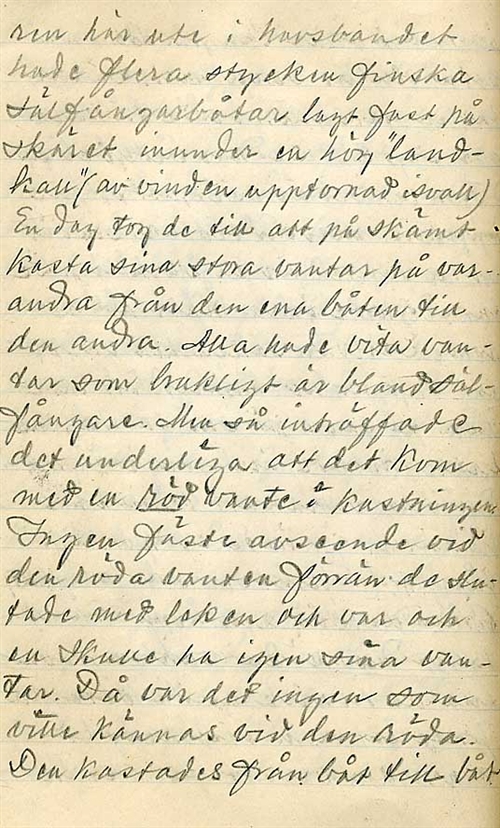 ren här ute i havsbandet
hade flera stycken finska
sälfångarbåtar lagt fast på
skäret inunder en hög "land-
kall" (av vinden upptornad isvall)
En dag tog de till att på skämt
kasta sina stora vantar på var-
andra från den ena båten till
den andra. Alla hade vita van-
tar som brukligt är bland säl-
fångare. Men så inträffade
det underliga att det kom
med en röd vante i kastningen.
Ingen fäste avseende vid
den röda vanten förrän de slu-
tade med leken och var och
en skulle ha igen sina van-
tar. Då var det ingen som
ville kännas vid den röda.
Den kastades från båt till båt